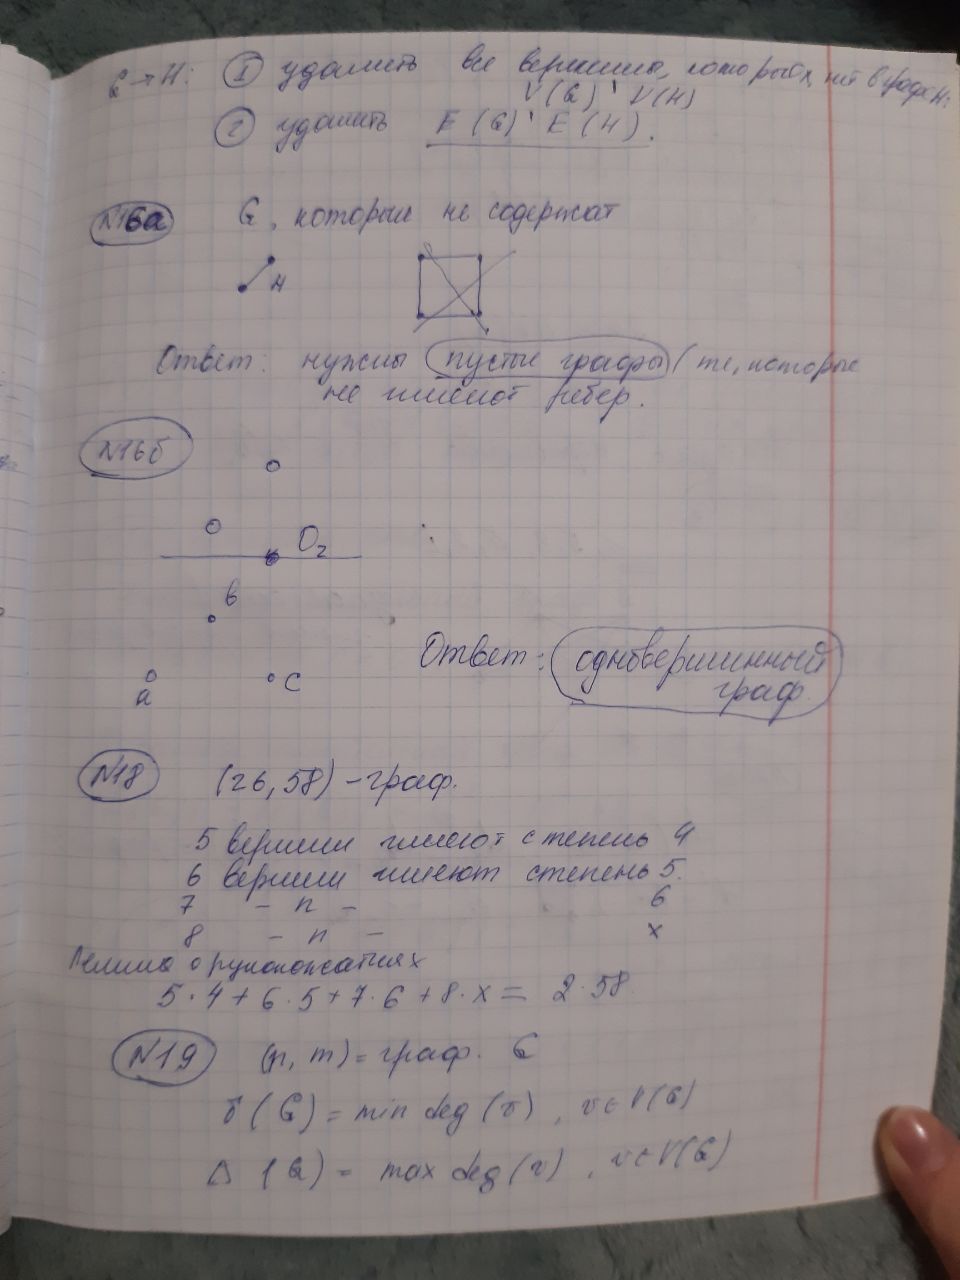 G → H: ① удалить все вершины, которых нет в графе H:
V(G) \ V(H)
② удалить E(G) \ E(H).
N16а G, которые не содержат
H
Ответ: нужны пустые графы (те, которые
не имеют ребер.
N16б
O₂
в
Ответ: одновершинный
граф.
а
с
N18 (26, 58) – граф.
5 вершин имеют степень 4
6 вершин имеют степень 5.
7 – п – 6
8 – п – x
Лемма о рукопожатиях
5·4 + 6·5 + 7·6 + 8·x = 2·58
N19 (n, m) = граф. G
δ(G) = min deg(v), v∈V(G)
Δ(G) = max deg(v), v∈V(G)